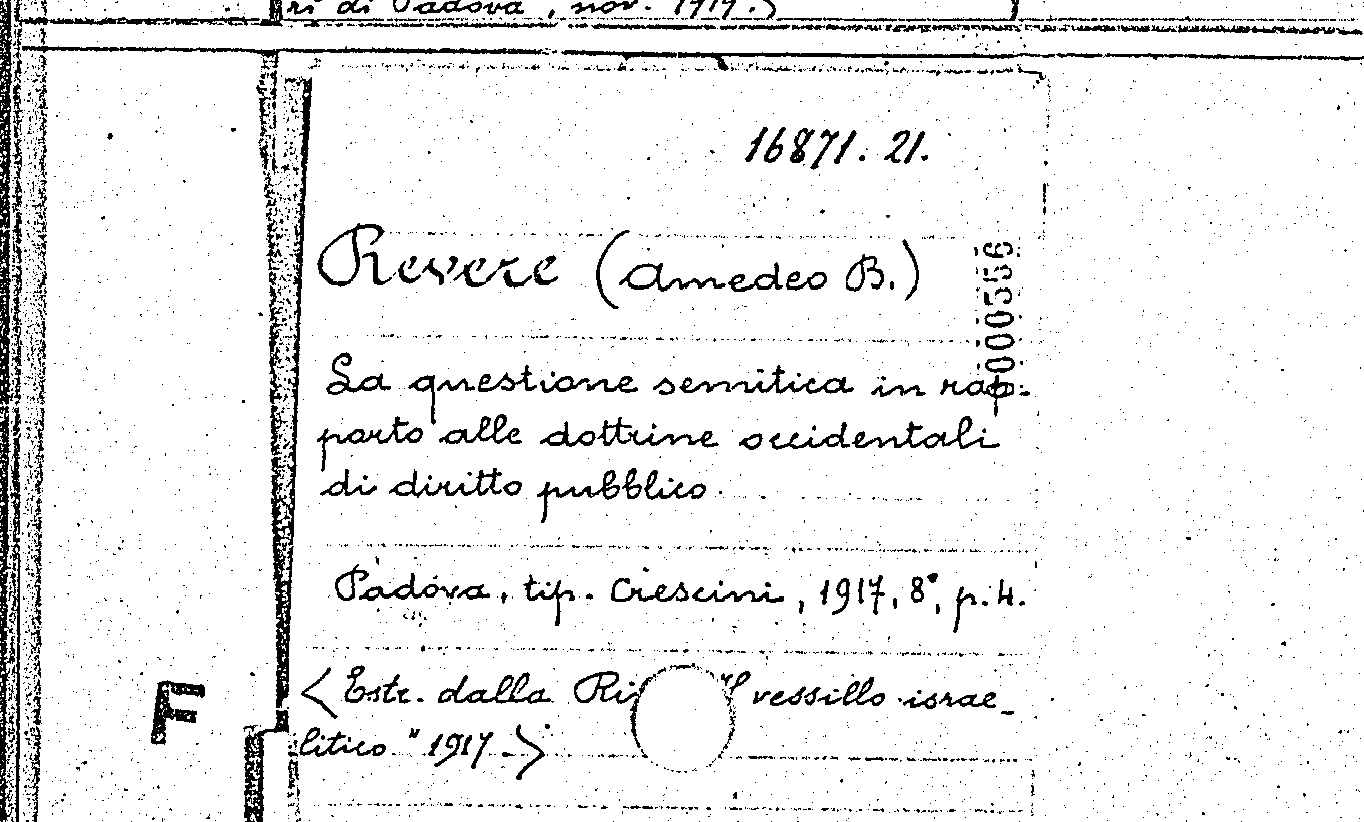 ri di Padova, nov. 1919.>
16871. 21.
Revere (Amedeo B.)
000556
La questione semitica in rap-
porto alle dottrine occidentali
di diritto pubblico.
Padova, tip. Crescini, 1917, 8°, p. 4.
<Estr. dalla vessillo israe-
litico " 1917.>
F